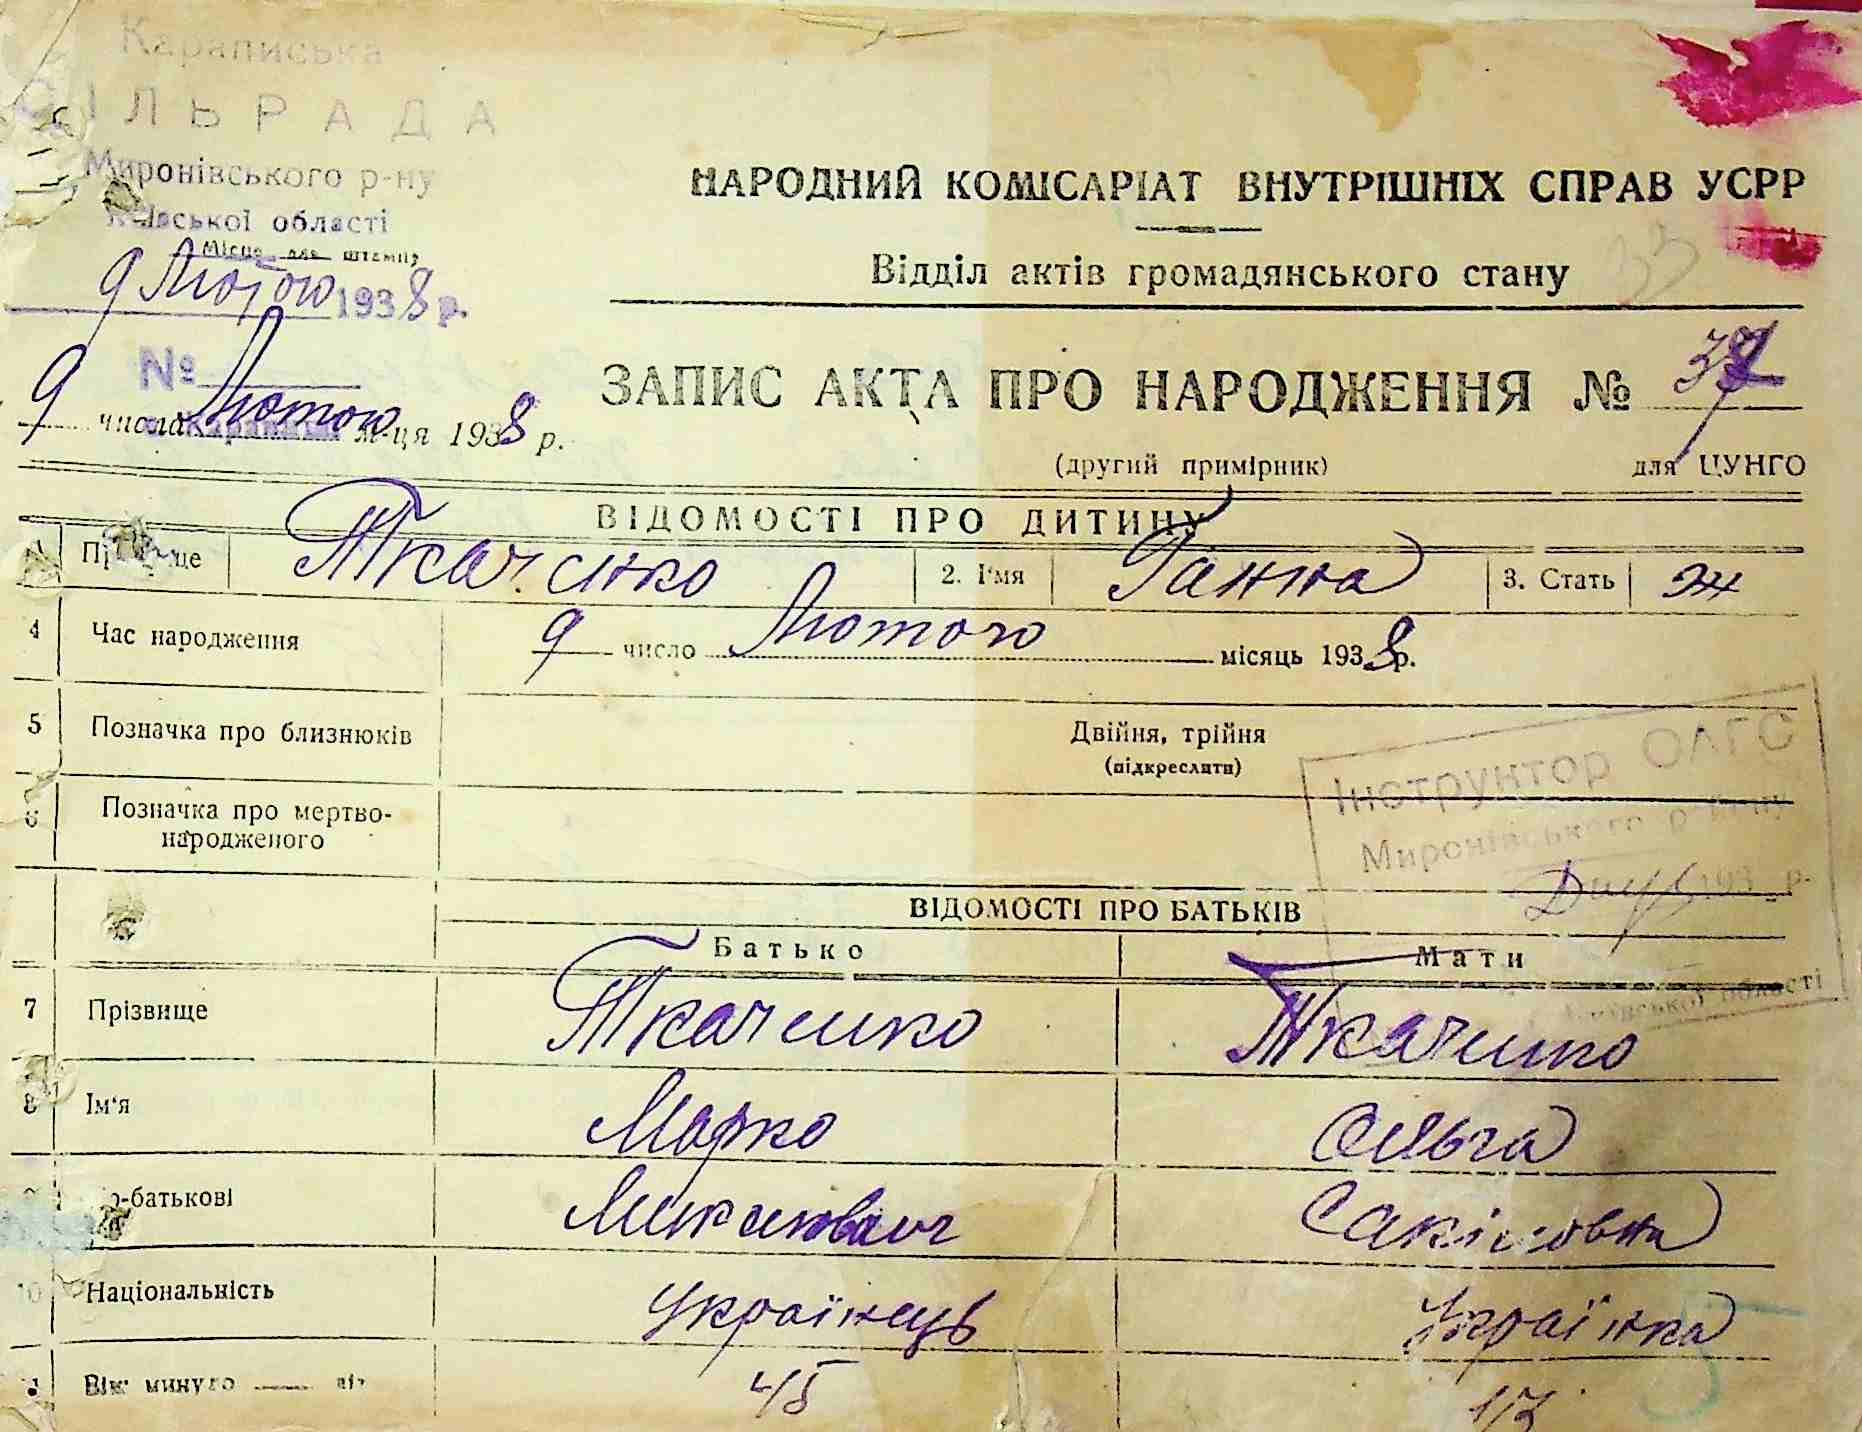 Караписька
СІЛЬРАДА
Миронівського р-ну
Київської області
Місце для штампу
9 Лютого 1938 р.
№
9 числа Лютого м-ця 1938 р.
НАРОДНИЙ КОМІСАРІАТ ВНУТРІШНІХ СПРАВ УСРР
Відділ актів громадянського стану
33
ЗАПИС АКТА ПРО НАРОДЖЕННЯ №
(другий примірник) для ЦУНГО
ВІДОМОСТІ ПРО ДИТИНУ
Прізвище Ткаченко 2. І'мя Ганна 3. Стать ж
4 Час народження 9 число Лютого місяць 1938 р.
5 Позначка про близнюків Двійня, трійня
(підкреслити)
6 Позначка про мертво-
народженого
Інструктор ОАГС
Миронівського р-йону
193 р.
Київської області
ВІДОМОСТІ ПРО БАТЬКІВ
Батько Мати
7 Прізвище Ткаченко Ткаченко
8 Ім'я Марко Ольга
9 По-батькові
10 Національність Українець Українка
Вік минуло літ 45